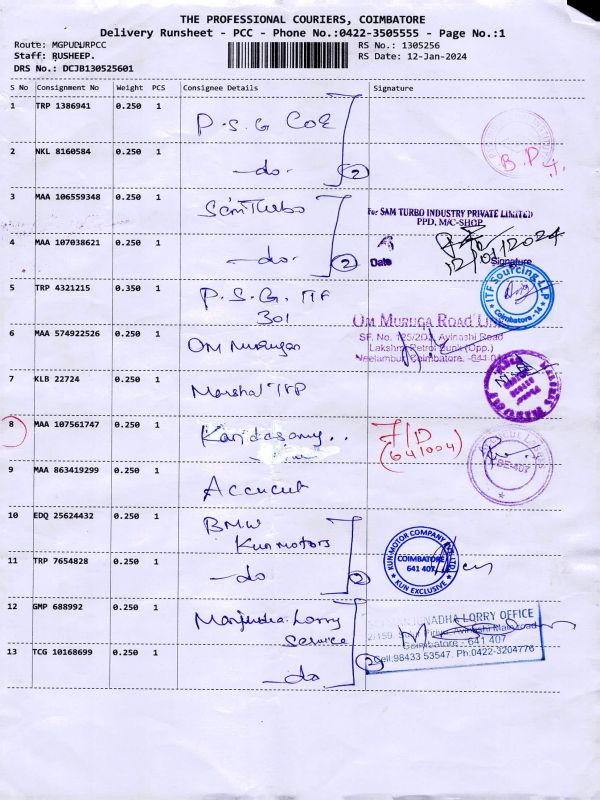 THE PROFESSIONAL COURIERS, COIMBATORE
Delivery Runsheet - PCC - Phone No.:0422-3505555 - Page No.:1
Route: MGPUDURPCC
RS No.: 1305256
Staff: RUSHEEP.
RS Date: 12-Jan-2024
DRS No.: DCJB130525601
S No Consignment No Weight PCS Consignee Details Signature
1 TRP 1386941 0.250 1 P.S.G COE
B.P.T.
2 NKL 8160584 0.250 1 -do- 2
3 MAA 106559348 0.250 1 Sam Turbo
For SAM TURBO INDUSTRY PRIVATE LIMITED
PPD, M/C-SHOP
4 MAA 107038621 0.250 1 -do- 2
12/01/2024
Date Signature
5 TRP 4321215 0.350 1 P.S.G. ITF
301
ITF Sourcing LLP
Coimbatore-14
6 MAA 574922526 0.250 1 OM Murugan
OM MURUGA ROAD
SF, No. 125/2D2, Avinashi Road
Lakshmi Petrol Bunk (Opp.)
Neelambur, Coimbatore
7 KLB 22724 0.250 1 Marshal TRP
8 MAA 107561747 0.250 1 Karidasamy..
F/D
(641004)
9 MAA 863419299 0.250 1 Accucut
CBE-407
10 EDQ 25624432 0.250 1 BMW
Kun motors
KUN MOTOR COMPANY PVT LTD
COIMBATORE
641 407
KUN EXCLUSIVE
11 TRP 7654828 0.250 1 -do 2
12 GMP 688992 0.250 1 Manjundha Lorry
Service
LORRY OFFICE
Avinashi Main road
Coimbatore - 641 407
Cell:98433 53547 Ph:0422-3204776
13 TCG 10168699 0.250 1 -do 2